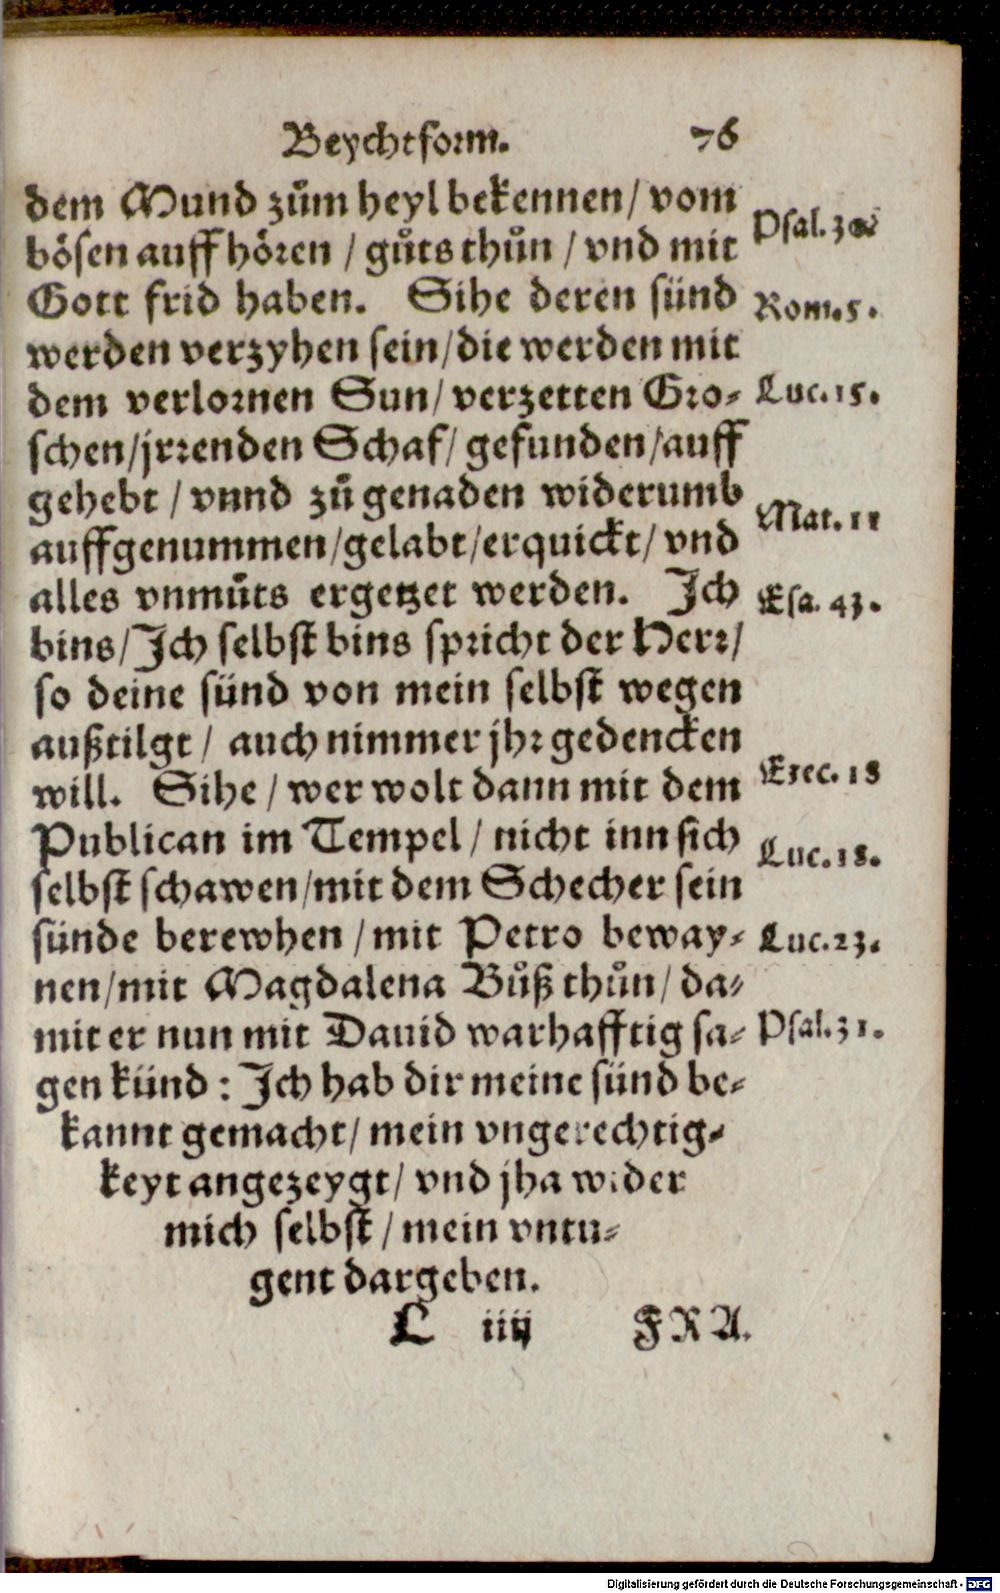 Beychtform. 76
dem Mund zům heyl bekennen/ vom
bösen auff hören / gůts thůn / vnd mit
Psal.
Gott frid haben. Sihe deren sünd
Rom.5.
werden verzyhen sein/die werden mit
dem verlornen Sun/ verzetten Gro-
Luc.15.
schen/jrrenden Schaf/ gefunden/auff
gehebt / vnnd zů genaden widerumb
auffgenummen/gelabt/erquickt/ vnd
Mat. 11
alles vnmůts ergetzet werden. Ich
Esa. 43.
bins/Ich selbst bins spricht der Herr/
so deine sünd von mein selbst wegen
außtilgt / auch nimmer jhr gedencken
will. Sihe / wer wolt dann mit dem
Ezec. 18
Publican im Tempel / nicht inn sich
Luc.18.
selbst schawen/mit dem Schecher sein
sünde berewhen /mit Petro beway-
Luc.23.
nen/mit Magdalena Bůß thůn/ da-
mit er nun mit Dauid warhafftig sa-
Psal.31.
gen künd : Ich hab dir meine sünd be-
kannt gemacht/ mein vngerechtig-
keyt angezeygt/ vnd jha wider
mich selbst / mein vntu-
gent dargeben.
L iiij FRA.
Digitalisierung gefördert durch die Deutsche Forschungsgemeinschaft - DFG